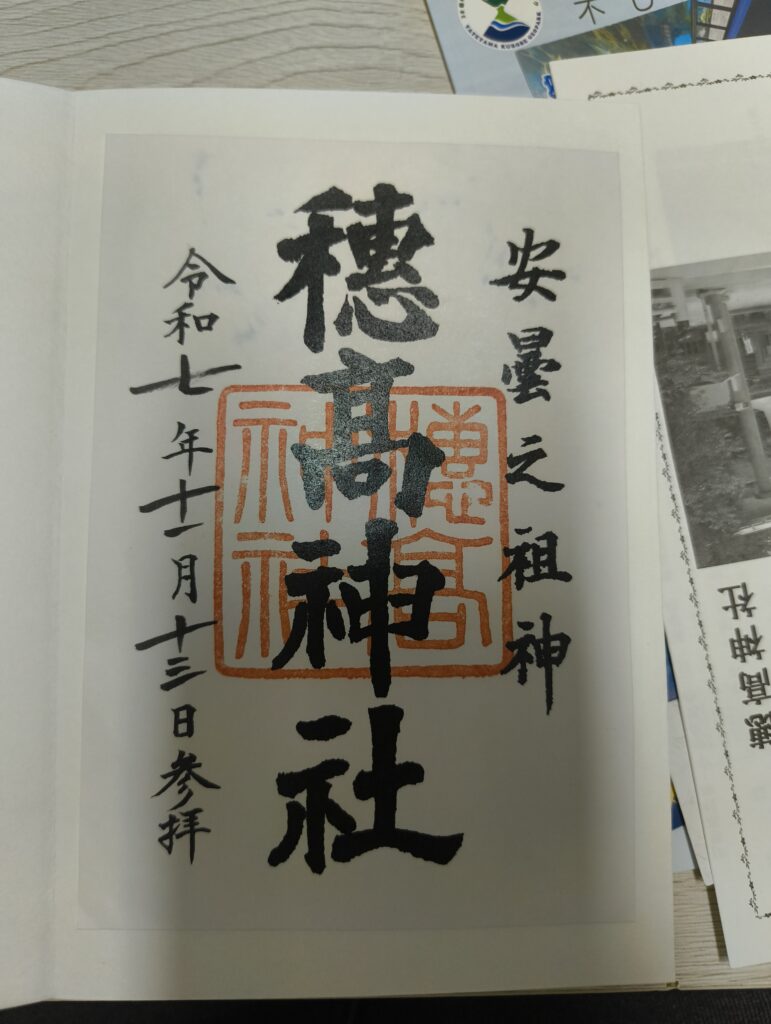 安曇之祖神
穂髙神社
令和七年十一月十三日参拝
穂高神社
TATEYAMA KUROBE GEOPARK
穂髙神社